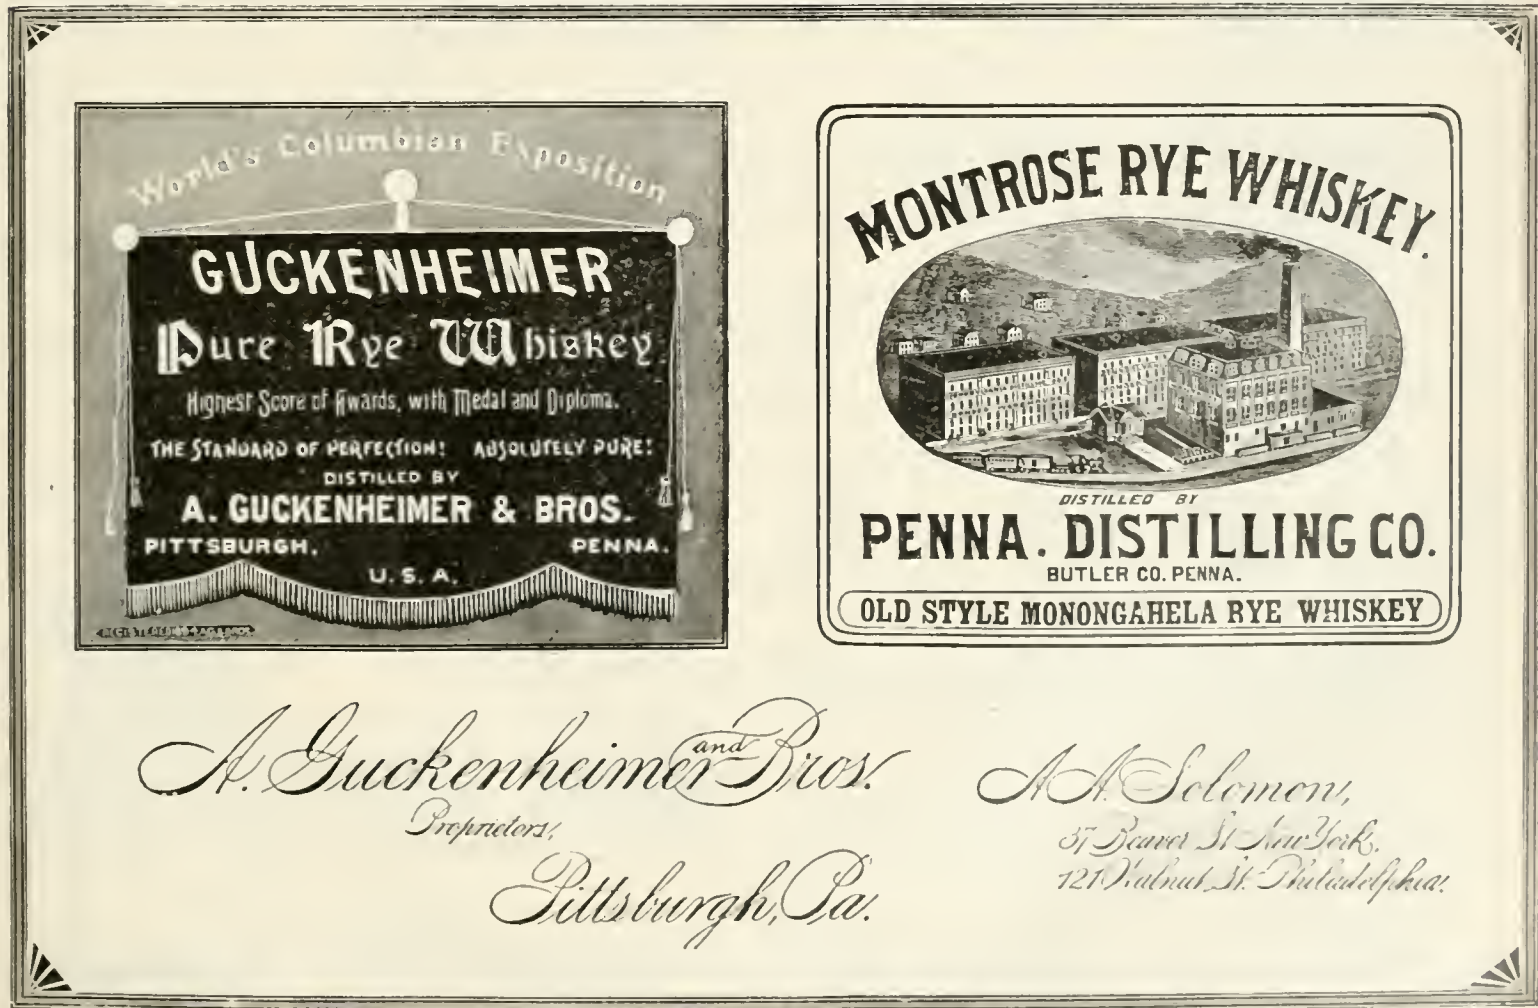 World's Columbian Exposition
GUCKENHEIMER
Pure Rye Whiskey
Highest Score of Awards, with Medal and Diploma.
THE STANDARD OF PERFECTION! ABSOLUTELY PURE!
DISTILLED BY
A. GUCKENHEIMER & BROS.
PITTSBURGH, PENNA.
U. S. A.
MONTROSE RYE WHISKEY.
DISTILLED BY
PENNA. DISTILLING CO.
BUTLER CO. PENNA.
OLD STYLE MONONGAHELA RYE WHISKEY
A. Guckenheimer and Bros.
Proprietors,
Pittsburgh, Pa.
A. A. Solomon,
37 Beaver St. New York,
121 Walnut St. Philadelphia.